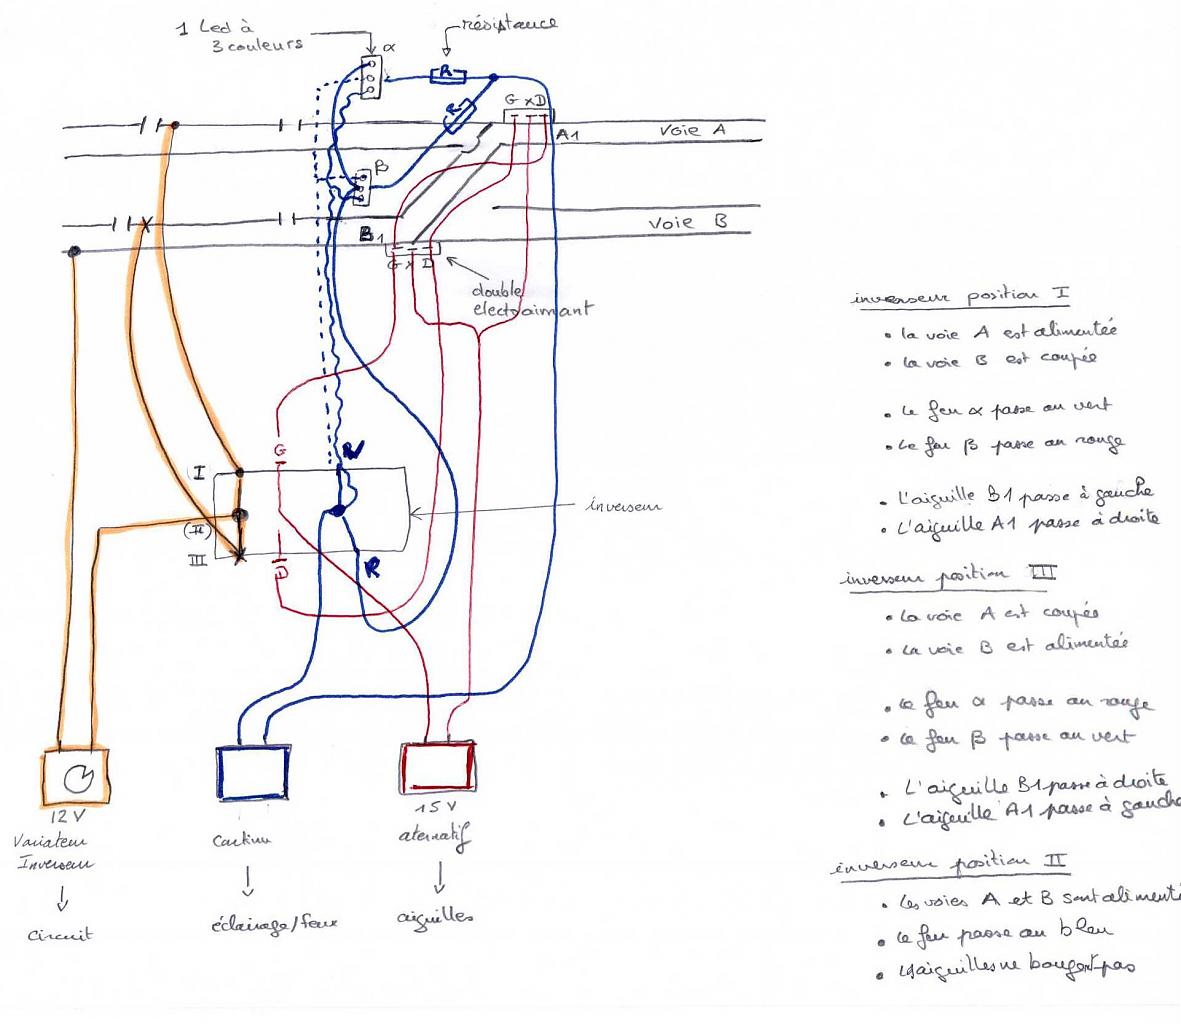 1 Led à
3 couleurs
α
résistance
R
R
G x D
A1
voie A
β
voie B
B1
G x D
double
electroaimant
inverseur position I
• la voie A est alimentée
• la voie B est coupée
• le feu α passe au vert
• Le feu β passe au rouge
• L'aiguille B1 passe à gauche
• L'aiguille A1 passe à droite
G
I
(II)
III
D
R
inverseur
inverseur position III
• La voie A est coupée
• La voie B est alimentée
• Le feu α passe au rouge
• Le feu β passe au vert
• L'aiguille B1 passe à droite
• L'aiguille A1 passe à gauche
inverseur position II
• Les voies A et B sont alimenté
• Le feu passe au bleu
• Les aiguilles ne bougent pas
12 V
Variateur
Inverseur
Circuit
Continu
éclairage/feux
15 V
aternatif
aiguilles